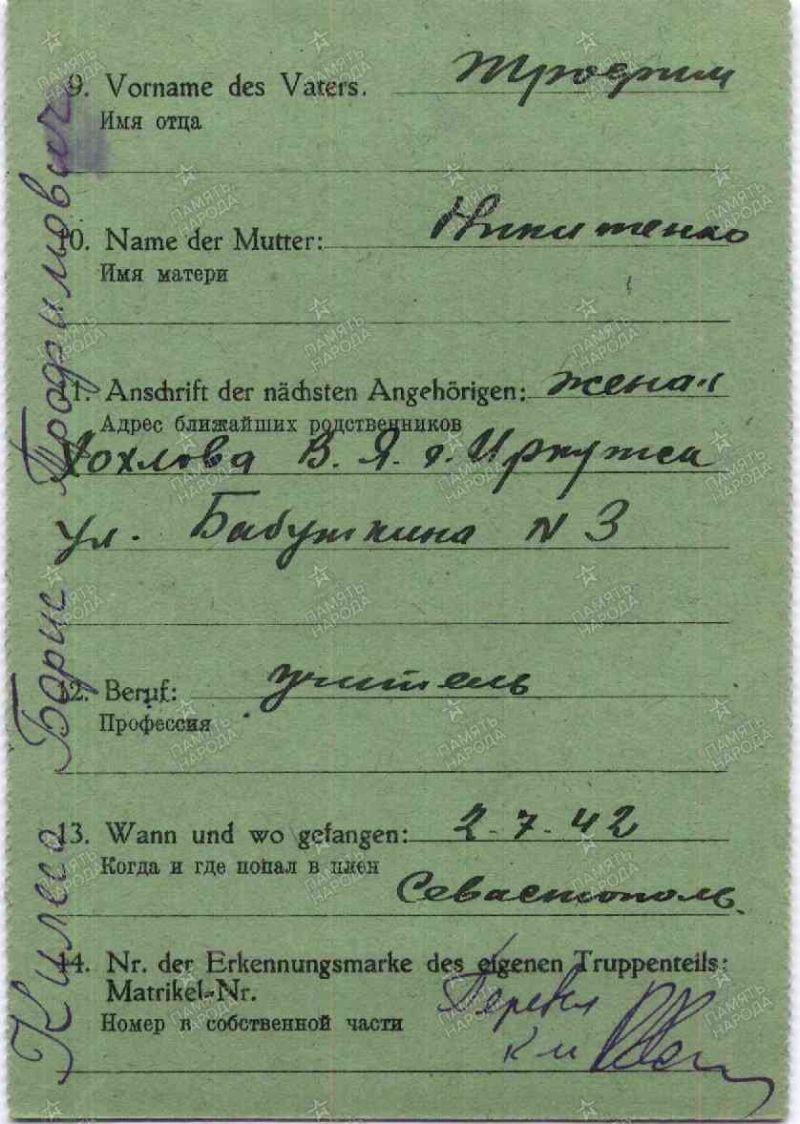 9. Vorname des Vaters.
Трофим
Имя отца
10. Name der Mutter:
Никитенко
Имя матери
11. Anschrift der nächsten Angehörigen: жена
Адрес ближайших родственников
Хохлова В. Я. г. Иркутск
ул. Бабушкина N 3
12. Beruf: учитель
Профессия
13. Wann und wo gefangen: 2-7-42
Когда и где попал в плен
Севастополь.
14. Nr. der Erkennungsmarke des eigenen Truppenteils:
Matrikel-Nr.
Номер в собственной части
Перевел
Борис Трофимович
ПАМЯТЬ
НАРОДА